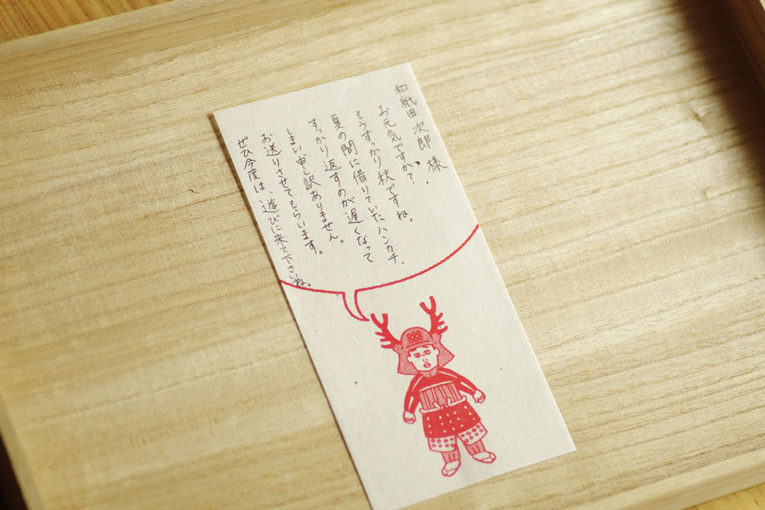 和紙田 次郎 様
お元気ですか？
もうすっかり秋ですね。
夏の間に借りていたハンカチ、
すっかり返すのが遅くなって
しまい、申し訳ありません。
お送りさせてもらいます。
ぜひ今度は、遊びに来て下さいね。